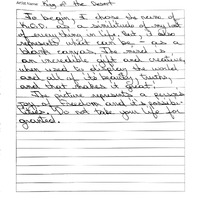 Artist Name: King of the Desert
To begin, I chose the name of
as a similitude of my life
of everything in life. But, I also
represents what can be - as a
blank canvas. The mind is
an incredible gift and creative
when used to display the world
and all of its beauty,
and that makes it great!
The picture represents a person's
joy of freedom and it's
Do not take your life for
granted.